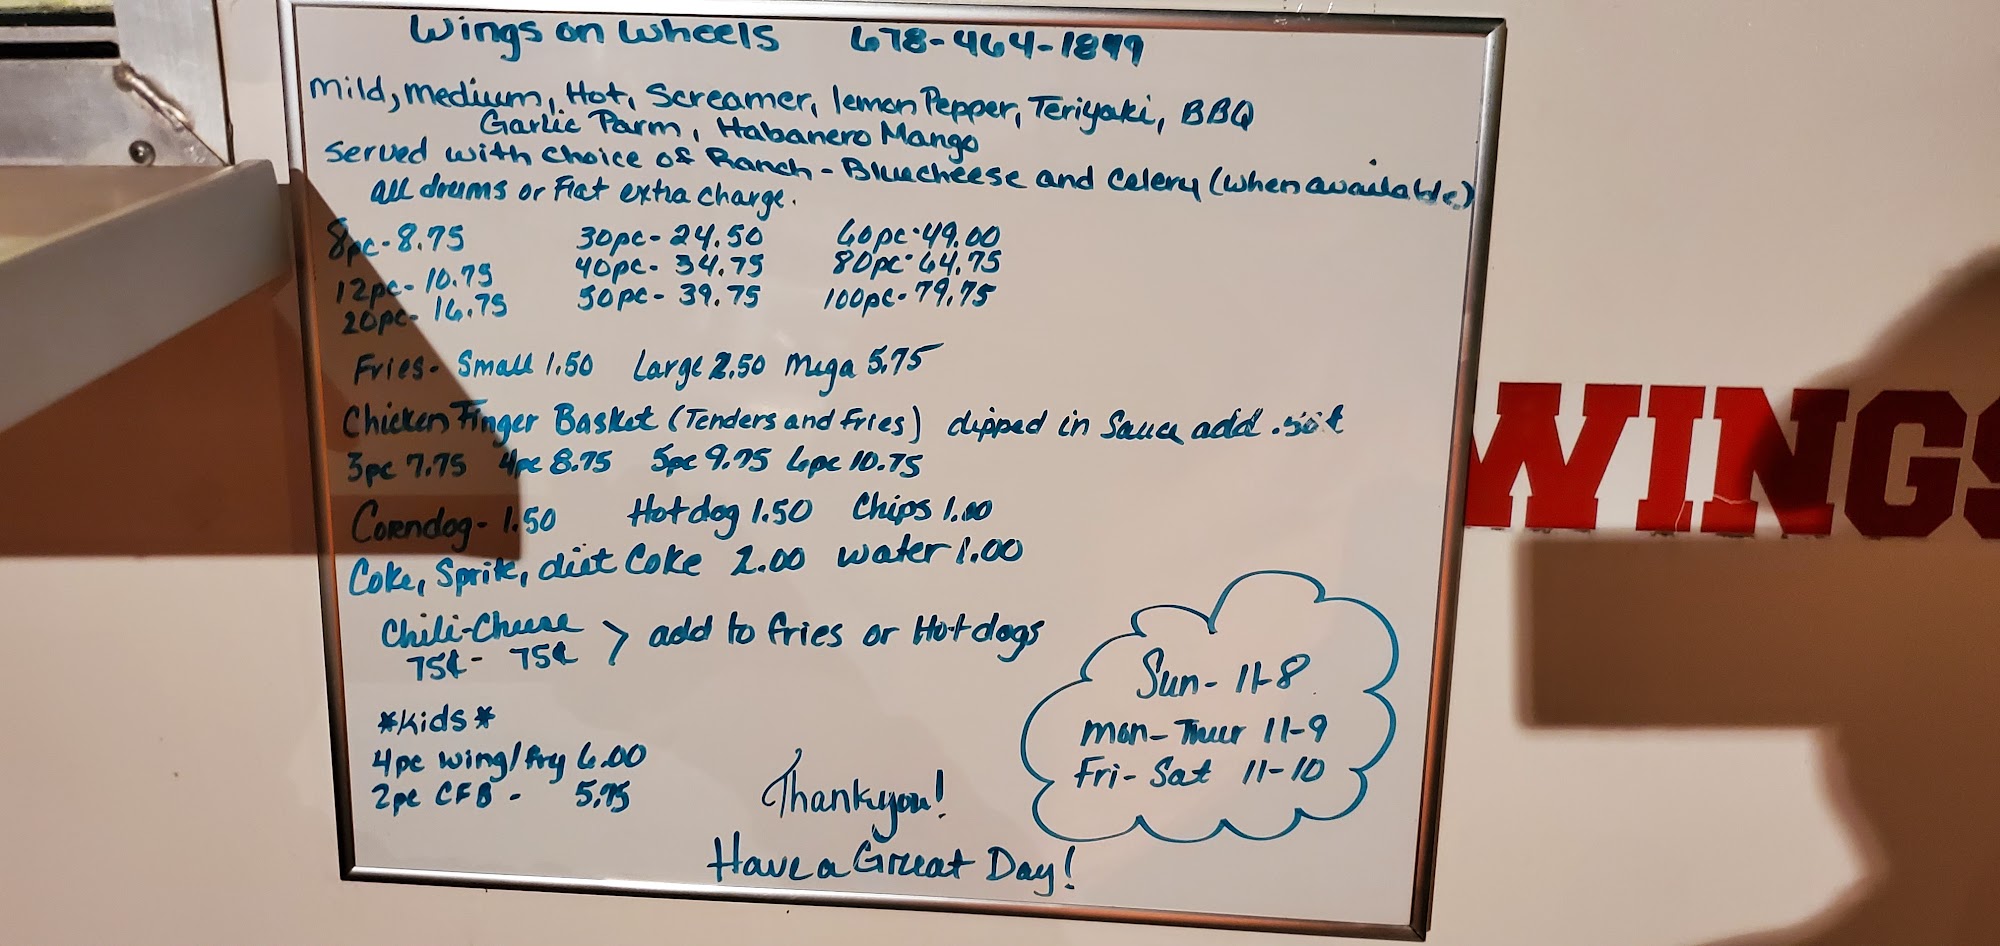 Wings on Wheels 678-464-1899
Mild, Medium, Hot, Screamer, lemon Pepper, Teriyaki, BBQ
Garlic Parm, Habanero Mango
Served with choice of Ranch - Bluecheese and Celery (when available)
all drums or Flat extra charge.
8pc-8.75 30pc-24.50 60pc-49.00
12pc-10.75 40pc-34.75 80pc-64.75
20pc-16.75 50pc-39.75 100pc-79.75
Fries- Small 1.50 Large 2.50 Mega 5.75
Chicken Finger Basket (Tenders and Fries) dipped in Sauce add .50¢
3pc 7.75 4pc 8.75 5pc 9.75 6pc 10.75
Corndog- 1.50 Hotdog 1.50 Chips 1.00
Coke, Sprite, diet Coke 2.00 water 1.00
Chili-Cheese > add to fries or Hotdogs
75¢- 75¢
*Kids*
4pc wing/fry 6.00
2pc CFB - 5.75
Sun- 11-8
Mon-Thur 11-9
Fri-Sat 11-10
Thankyou!
Have a Great Day!
WINGS